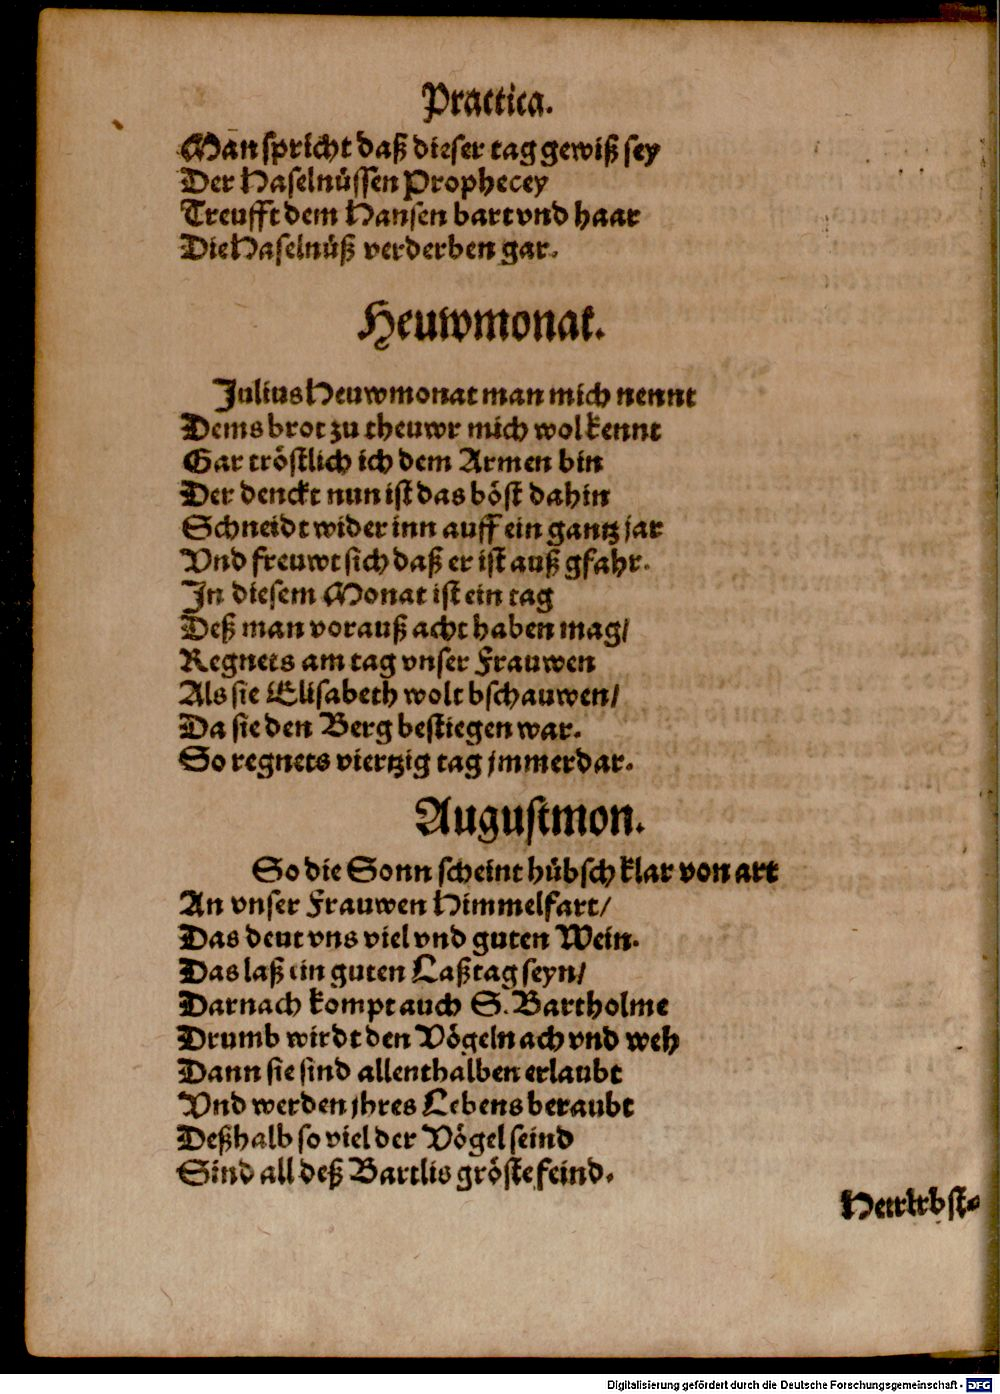 Practica.
Man spricht daß dieser tag gewiß sey
Der Haselnüssen Prophecey
Treufft dem Hansen bart vnd haar
Die Haselnüß verderben gar.
Heuwmonat.
Julius Heuwmonat man mich nennt
Dems brot zu theuwr mich wol kennt
Gar tröstlich ich dem Armen bin
Der denckt nun ist das böst dahin
Schneidt wider inn auff ein gantz jar
Vnd freuwt sich daß er ist auß gfahr.
In diesem Monat ist ein tag
Deß man vorauß acht haben mag/
Regnets am tag vnser Frauwen
Als sie Elisabeth wolt bschauwen/
Da sie den Berg bestiegen war.
So regnets viertzig tag jmmerdar.
Augustmon.
So die Sonn scheint hübsch klar von art
An vnser Frauwen Himmelfart/
Das deut vns viel vnd guten Wein.
Das laß ein guten Laßtag seyn/
Darnach kompt auch S. Bartholme
Drumb wirdt den Vögeln ach vnd weh
Dann sie sind allenthalben erlaubt
Vnd werden jhres Lebens beraubt
Deßhalb so viel der Vögel seind
Sind all deß Bartlis gröste feind.
Digitalisierung gefördert durch die Deutsche Forschungsgemeinschaft - DFG